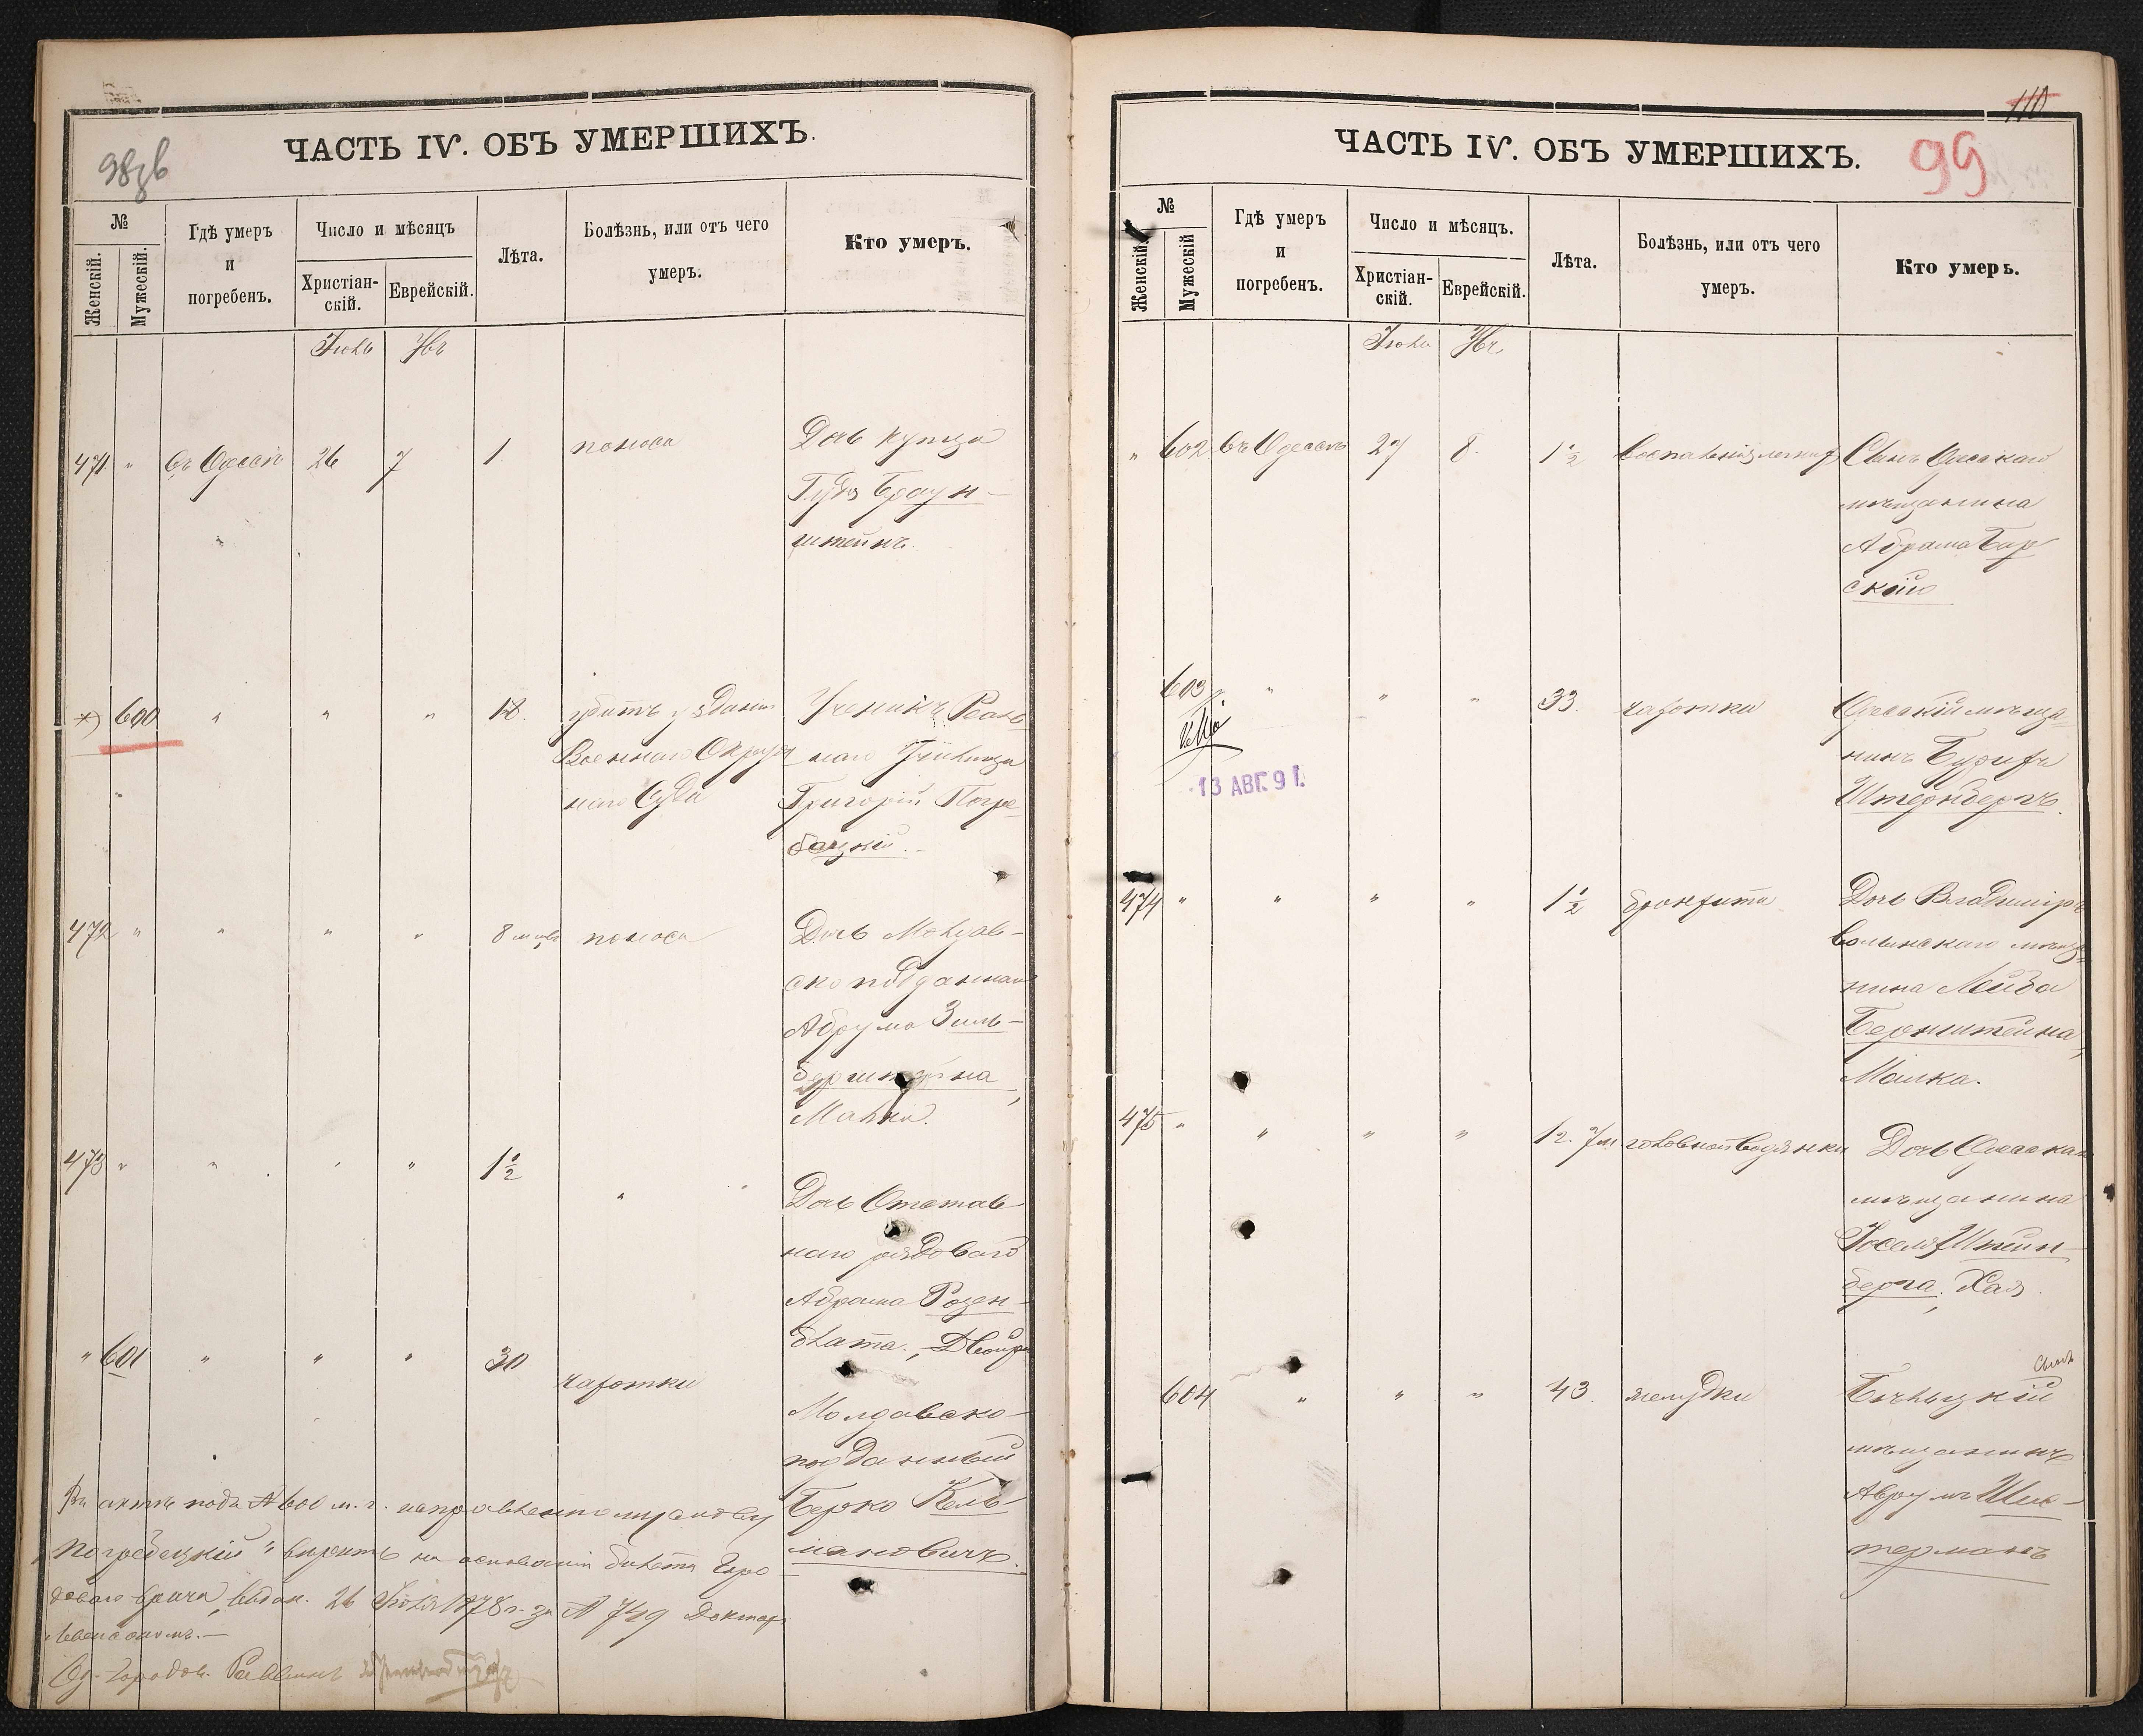 98 зв
ЧАСТЬ IV. ОБЪ УМЕРШИХЪ.
№
Женскій.
Мужескій.
Гдѣ умеръ
и
погребенъ.
Число и мѣсяцъ
Христіан-
скій.
Еврейскій.
Лѣта.
Болѣзнь, или отъ чего
умеръ.
Кто умеръ.
Іюль
471 " въ Одессѣ 26 7 1 поноса Дочь купца
Браун-
штейнъ.
*) 600 " " " 18. убитъ у зданія Ученикъ Реаль
Военнаго Окруж наго Училища
наго Суда Григорій Погре-
бацкій.
472 " " " " 8 мѣс поноса Дочь Молдав-
ско подданнаго
Абрума Зиль-
берштейна,
Малка.
473 " " " " 1 1/2 " Дочь Отстав-
наго рядоваго
Абрама Розен-
блата, Двойра
" 601 " " " 30 чахотки Молдавско-
подданный
Берко Кель-
мановичъ.
Въ актѣ подъ № 600 м. г. направленному слову
Погребецкій" вѣрить на основаніи билета Горо
доваго врача, выдан. 26 Іюля 1878 г. за № 749 Доктор
Левенсономъ.—
Од. Городов. Раввинъ
110
99
ЧАСТЬ IV. ОБЪ УМЕРШИХЪ.
№
Женскій.
Мужескій
Гдѣ умеръ
и
погребенъ.
Число и мѣсяцъ.
Христіан-
скій.
Еврейскій.
Лѣта.
Болѣзнь, или отъ чего
умеръ.
Кто умеръ.
Іюль
" 602 въ Одессѣ 27 8. 1 1/2 воспаленія легких Сынъ Одесскаго
мѣщанина
Абрама Бар
скаго
603 " " " 33. чахотки Одесскій мѣща-
нинъ Бурихъ
Штернбергъ.
13 АВГ. 9 Г.
474 " " " " 1 1/2 бронхита Дочь Владимір
волынскаго мѣща-
нина Лейба
Бернштейна,
Малка.
475 " " " " 1 г. 7 м головной водянки Дочь Одесскаго
мѣщанина
Іоселя Штейн-
берга, Хая.
604 " " " 43. желудки
мѣщанинъ
Аврумъ Шис-
терманъ
Сынъ